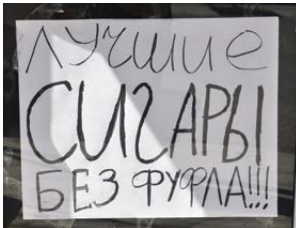 Лучшие
СИГАРЫ
БЕЗ ФУФЛА!!!